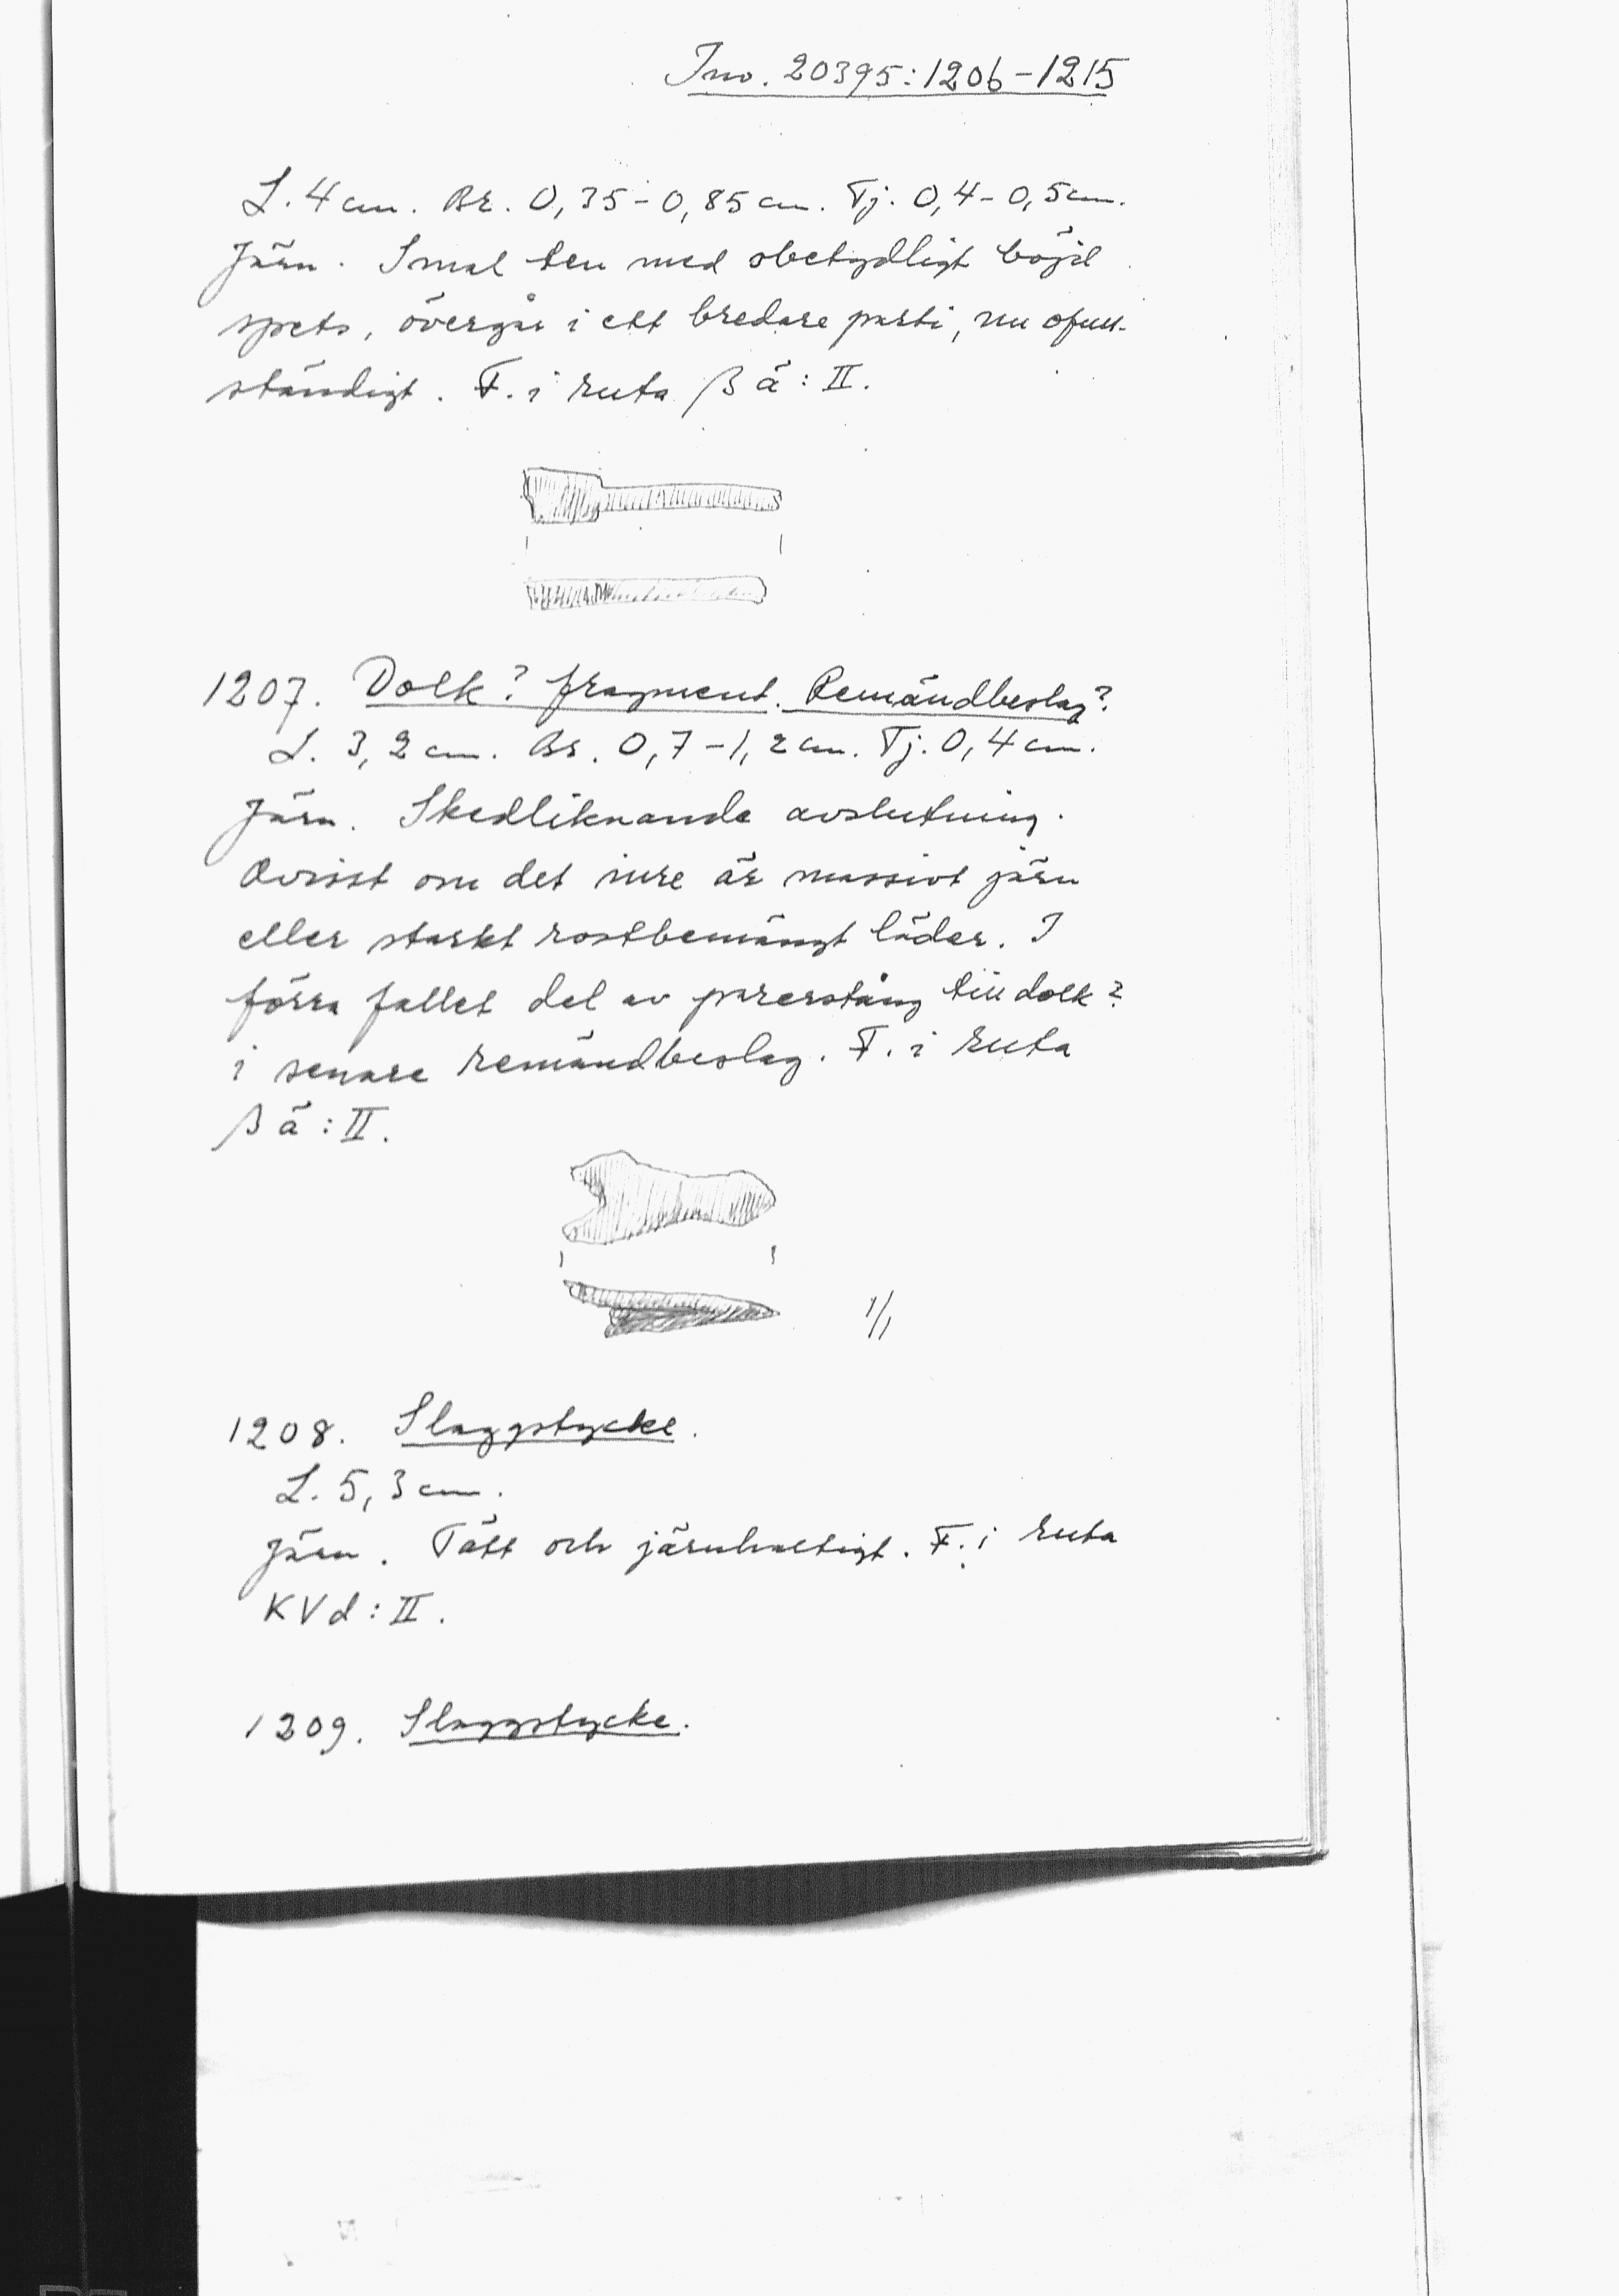 Inv. 20395:1206-1215
L. 4 cm. Br. 0,35-0,85 cm. Tj. 0,4-0,5 cm.
Järn. Smal ten med obetydligt böjd
spets, övergår i ett bredare parti, nu ofull-
ständigt. F. i ruta β ä : II.
1207. Dolk? fragment. Remändbeslag?
L. 3,2 cm. Br. 0,7-1,2 cm. Tj. 0,4 cm.
Järn. Skedliknande avslutning.
Ovisst om det inre är massivt järn
eller starkt rostbemängt läder. I
förra fallet del av parerstång till dolk?
i senare remändbeslag. F. i ruta
β ä : II.
1/1
1208. Slaggstycke.
L. 5,3 cm.
Järn. Tätt och järnhaltigt. F. i ruta
KVd : II.
1209. Slaggstycke.